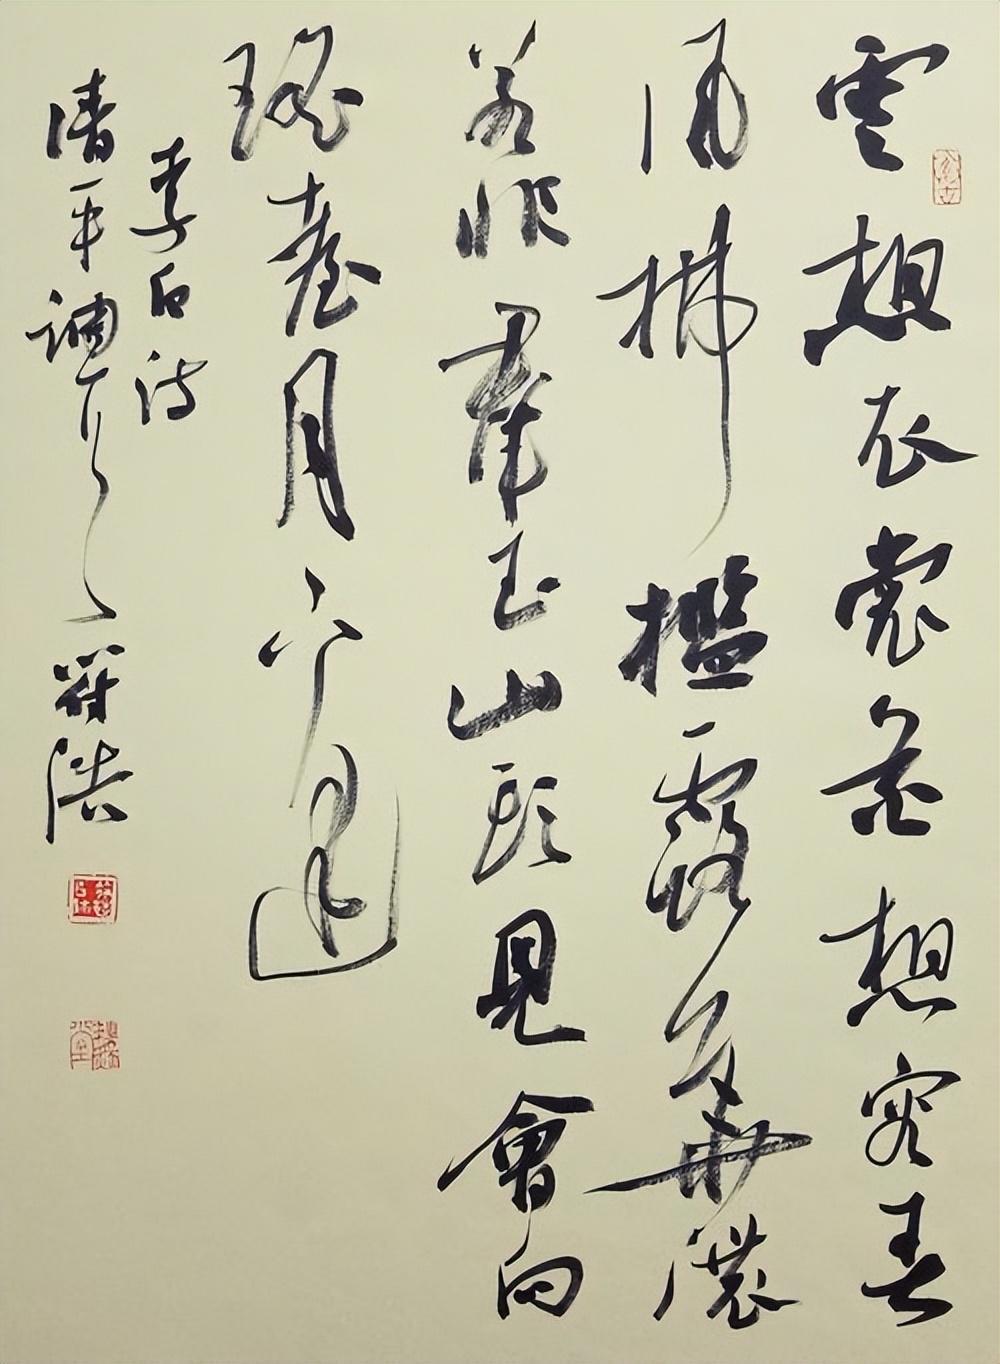 雲想衣裳花想容春
風拂檻露華濃
若非羣玉山頭見會向
瑤臺月下逢
李白詩
清平調 符浩